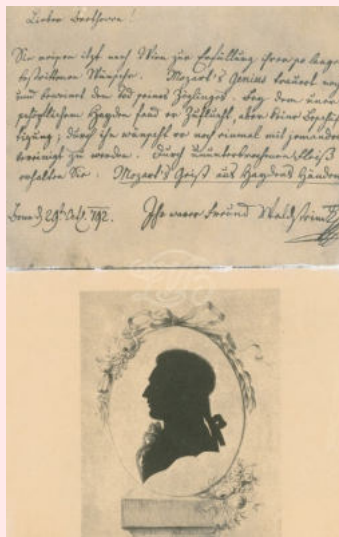 Lieber Beethowen!
Sie reisen itzt nach Wien zur Erfüllung ihrer so lange
bestrittenen Wünsche. Mozart's Genius trauert noch
und beweinet den Tod seines Zöglinges. Bey dem uner
schöpflichem Hayden fand er Zuflucht, aber keine Beschäf
tigung; durch ihn wünscht er noch einmal mit jemanden
vereinigt zu werden. Durch ununterbrochenen Fleiß
erhalten Sie: Mozart's Geist aus Haydens Händen
Bonn d. 29t. Oct. 792. Ihr warer Freund Waldstein